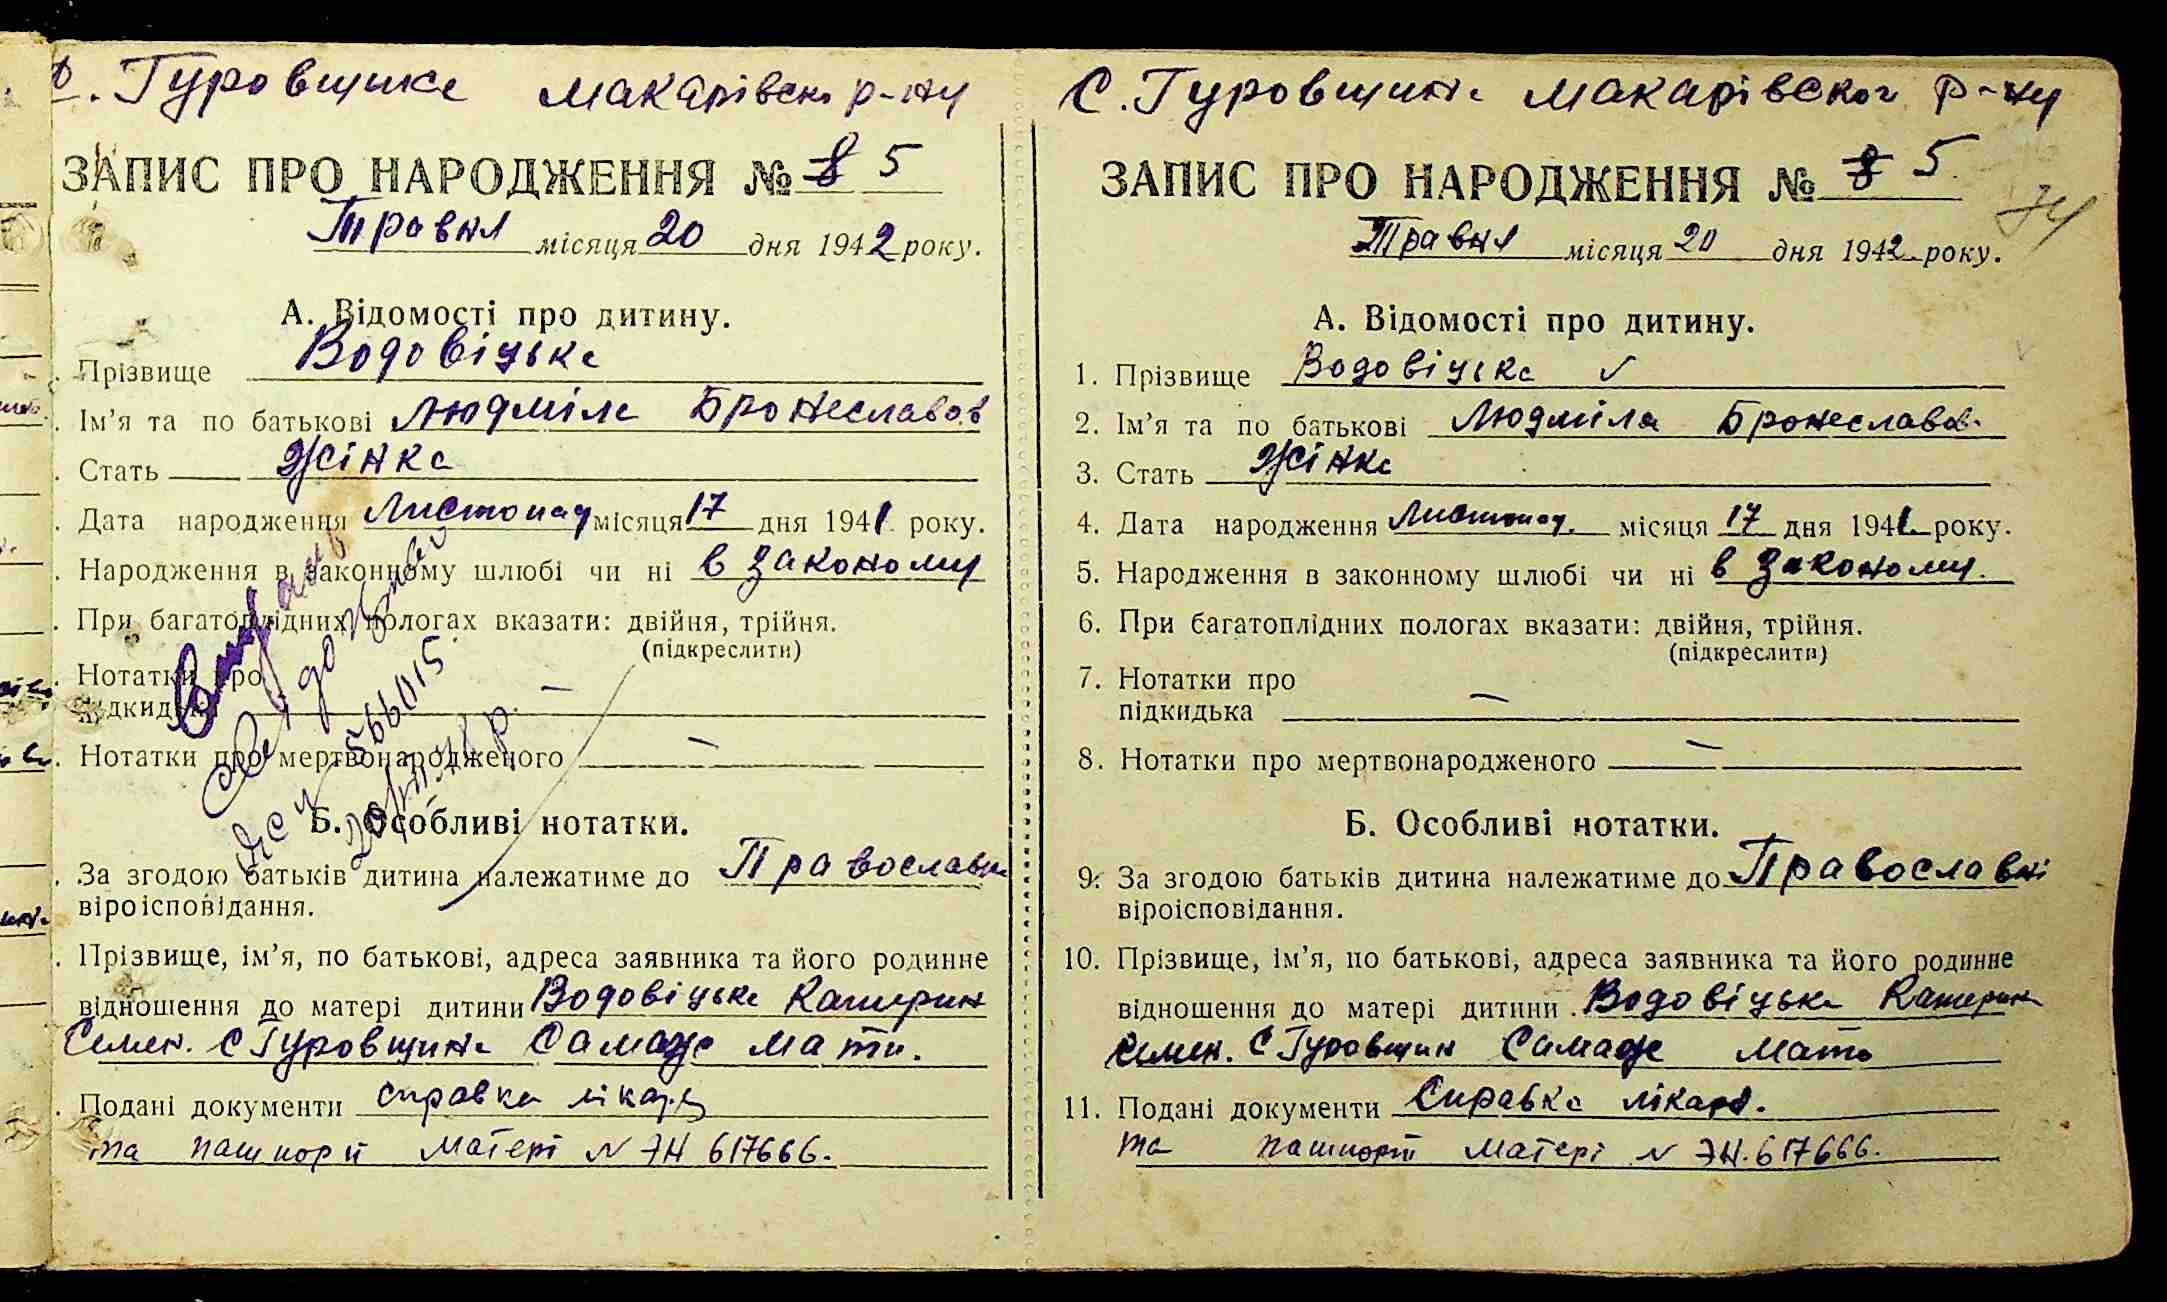 с. Гуровщина Макарівськ р-ну
ЗАПИС ПРО НАРОДЖЕННЯ № 8 5
Травня місяця 20 дня 1942 року.
А. Відомості про дитину.
Прізвище Водовіцька
Ім’я та по батькові Людміла Бронеславов
Стать Жінка
Дата народження Листопад місяця 17 дня 1941 року.
Народження в законному шлюбі чи ні в законому
При багатоплідних пологах вказати: двійня, трійня.
(підкреслити)
Нотатки про
підкидька —
Нотатки про мертвонародженого —
566015
Б. Особливі нотатки.
За згодою батьків дитина належатиме до Православн
віроісповідання.
Прізвище, ім’я, по батькові, адреса заявника та його родинне
відношення до матері дитини Водовіцька Катерин
Семен. с Гуровщина Самаже мати.
Подані документи справка лікаря
та пашпорт матері № ЭН 617666.
С. Гуровщина Макарівског р-ну
ЗАПИС ПРО НАРОДЖЕННЯ № 8 5
74
Травня місяця 20 дня 1942 року.
А. Відомості про дитину.
1. Прізвище Водовіцька
2. Ім’я та по батькові Людміла Бронеславов.
3. Стать Жінка
4. Дата народження Листопад. місяця 17 дня 1941 року.
5. Народження в законному шлюбі чи ні в законому.
6. При багатоплідних пологах вказати: двійня, трійня.
(підкреслити)
7. Нотатки про
підкидька —
8. Нотатки про мертвонародженого —
Б. Особливі нотатки.
9. За згодою батьків дитина належатиме до Православні
віроісповідання.
10. Прізвище, ім’я, по батькові, адреса заявника та його родинне
відношення до матері дитини Водовіцька Катерин
Семен. с Гуровщин Самаже мать
11. Подані документи Справка лікаря.
та пашпорт матері № ЭН. 617666.